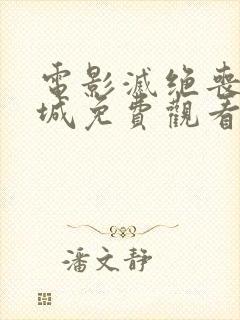 電影滅绝喪
城免費觀看
潘文靜